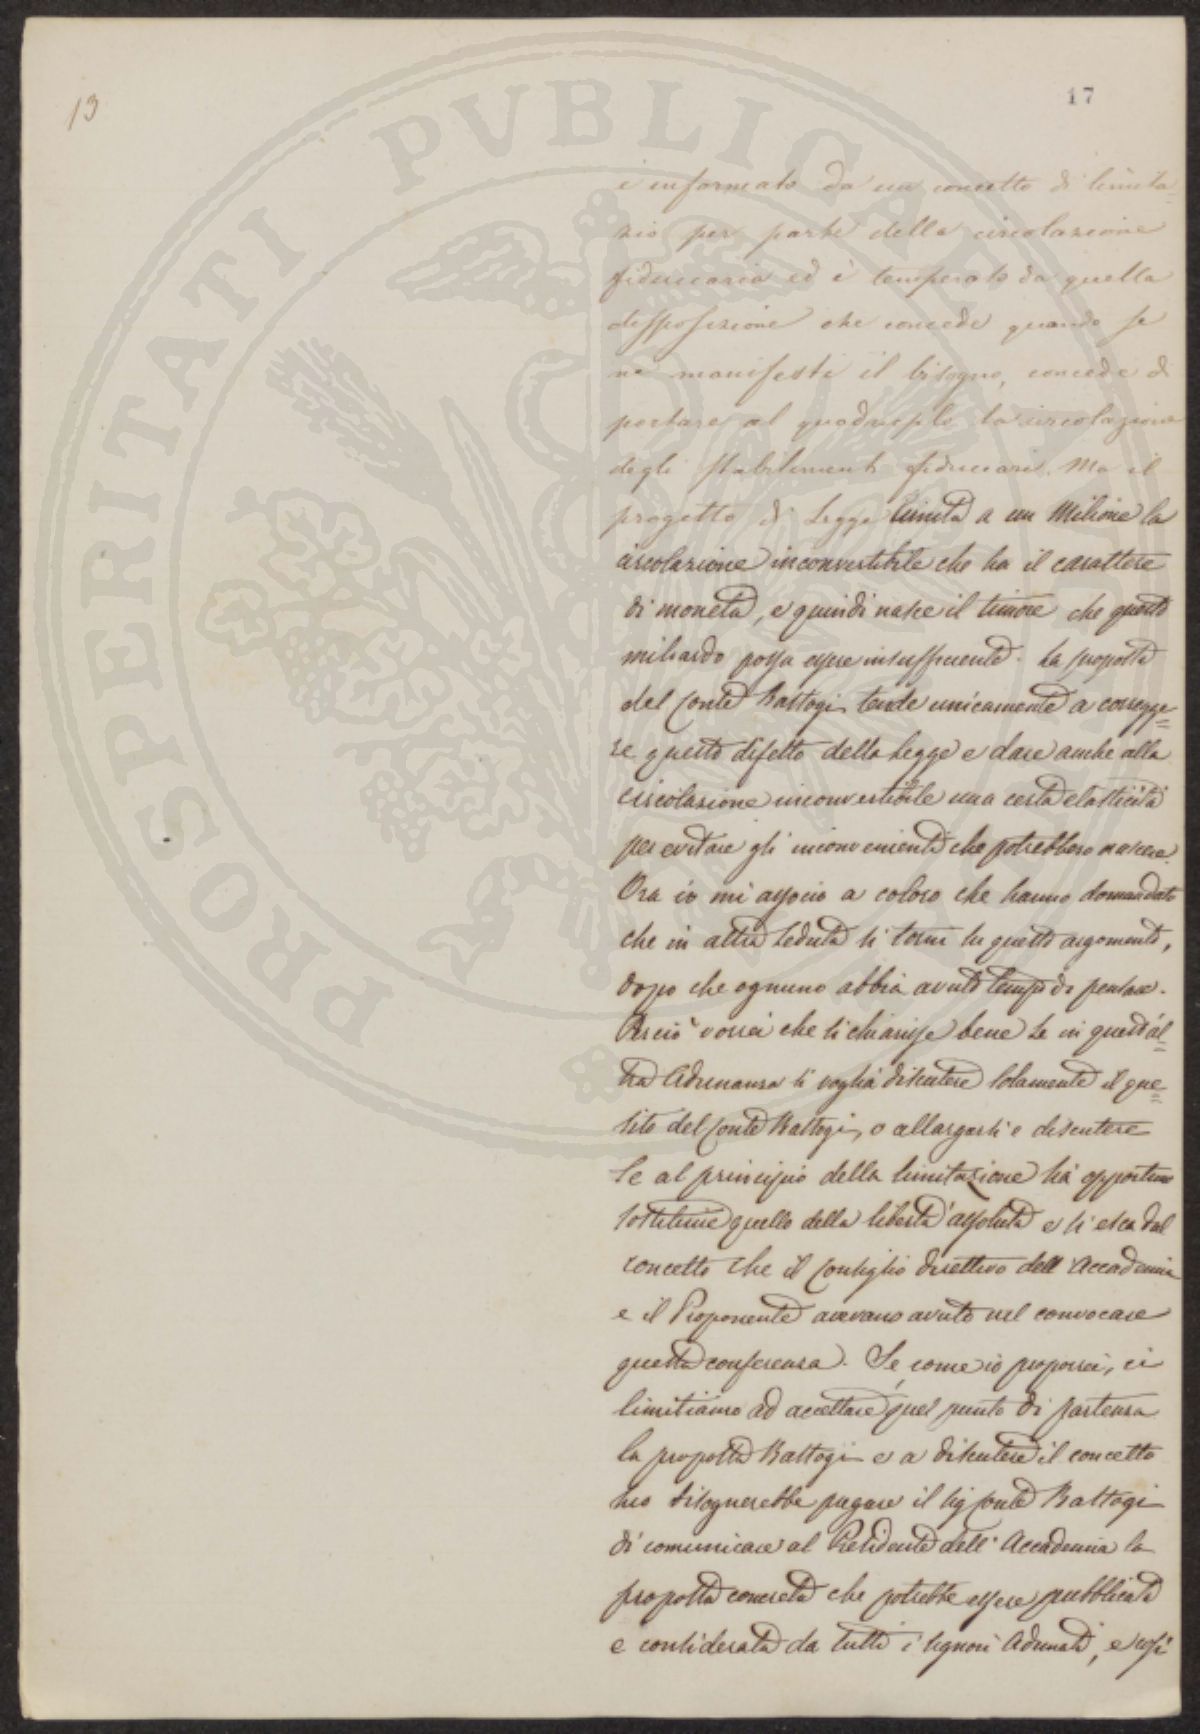 13
17
PROSPERITATI PVBLICAE
è informato da un concetto di limita=
zio per parte della circolazione
fiduciaria ed è temperato da quella
disposizione che concede quando se
ne manifesti il bisogno, concede di
portare al quadruplo la circolazione
degli stabilimenti fiduciari. Ma il
progetto di Legge limita a un Milione la
circolazione inconvertibile che ha il carattere
di moneta, e quindi nasce il timore che questo
miliardo possa essere insufficiente. La proposta
del Conte Bastogi tende unicamente a corregge=
re questo difetto della Legge e dare anche alla
circolazione inconvertibile una certa elasticità
per evitare gli inconvenienti che potrebbero nascere.
Ora io mi associo a coloro che hanno domandato
che in altra seduta si torni su questo argomento,
dopo che ognuno abbia avuto tempo di pensare.
Perciò vorrei che si chiarisse bene se in quest'al=
tra Adunanza si voglia discutere solamente il que=
sito del Conte Bastogi, o allargarsi e discutere
se al principio della limitazione sia opportuno
sostituire quello della libertà assoluta e si esca dal
concetto che il Consiglio direttivo dell'Accademia
e il Proponente avevano avuto nel convocare
questa conferenza. Se, come io proporrei, ci
limitiamo ad accettare quel punto di partenza
la proposta Bastogi e a discutere il concetto
suo bisognerebbe pregare il sig Conte Bastogi
di comunicare al Presidente dell'Accademia la
proposta concreta che potrebbe essere pubblicata
e considerata da tutti i signori Adunati, e così